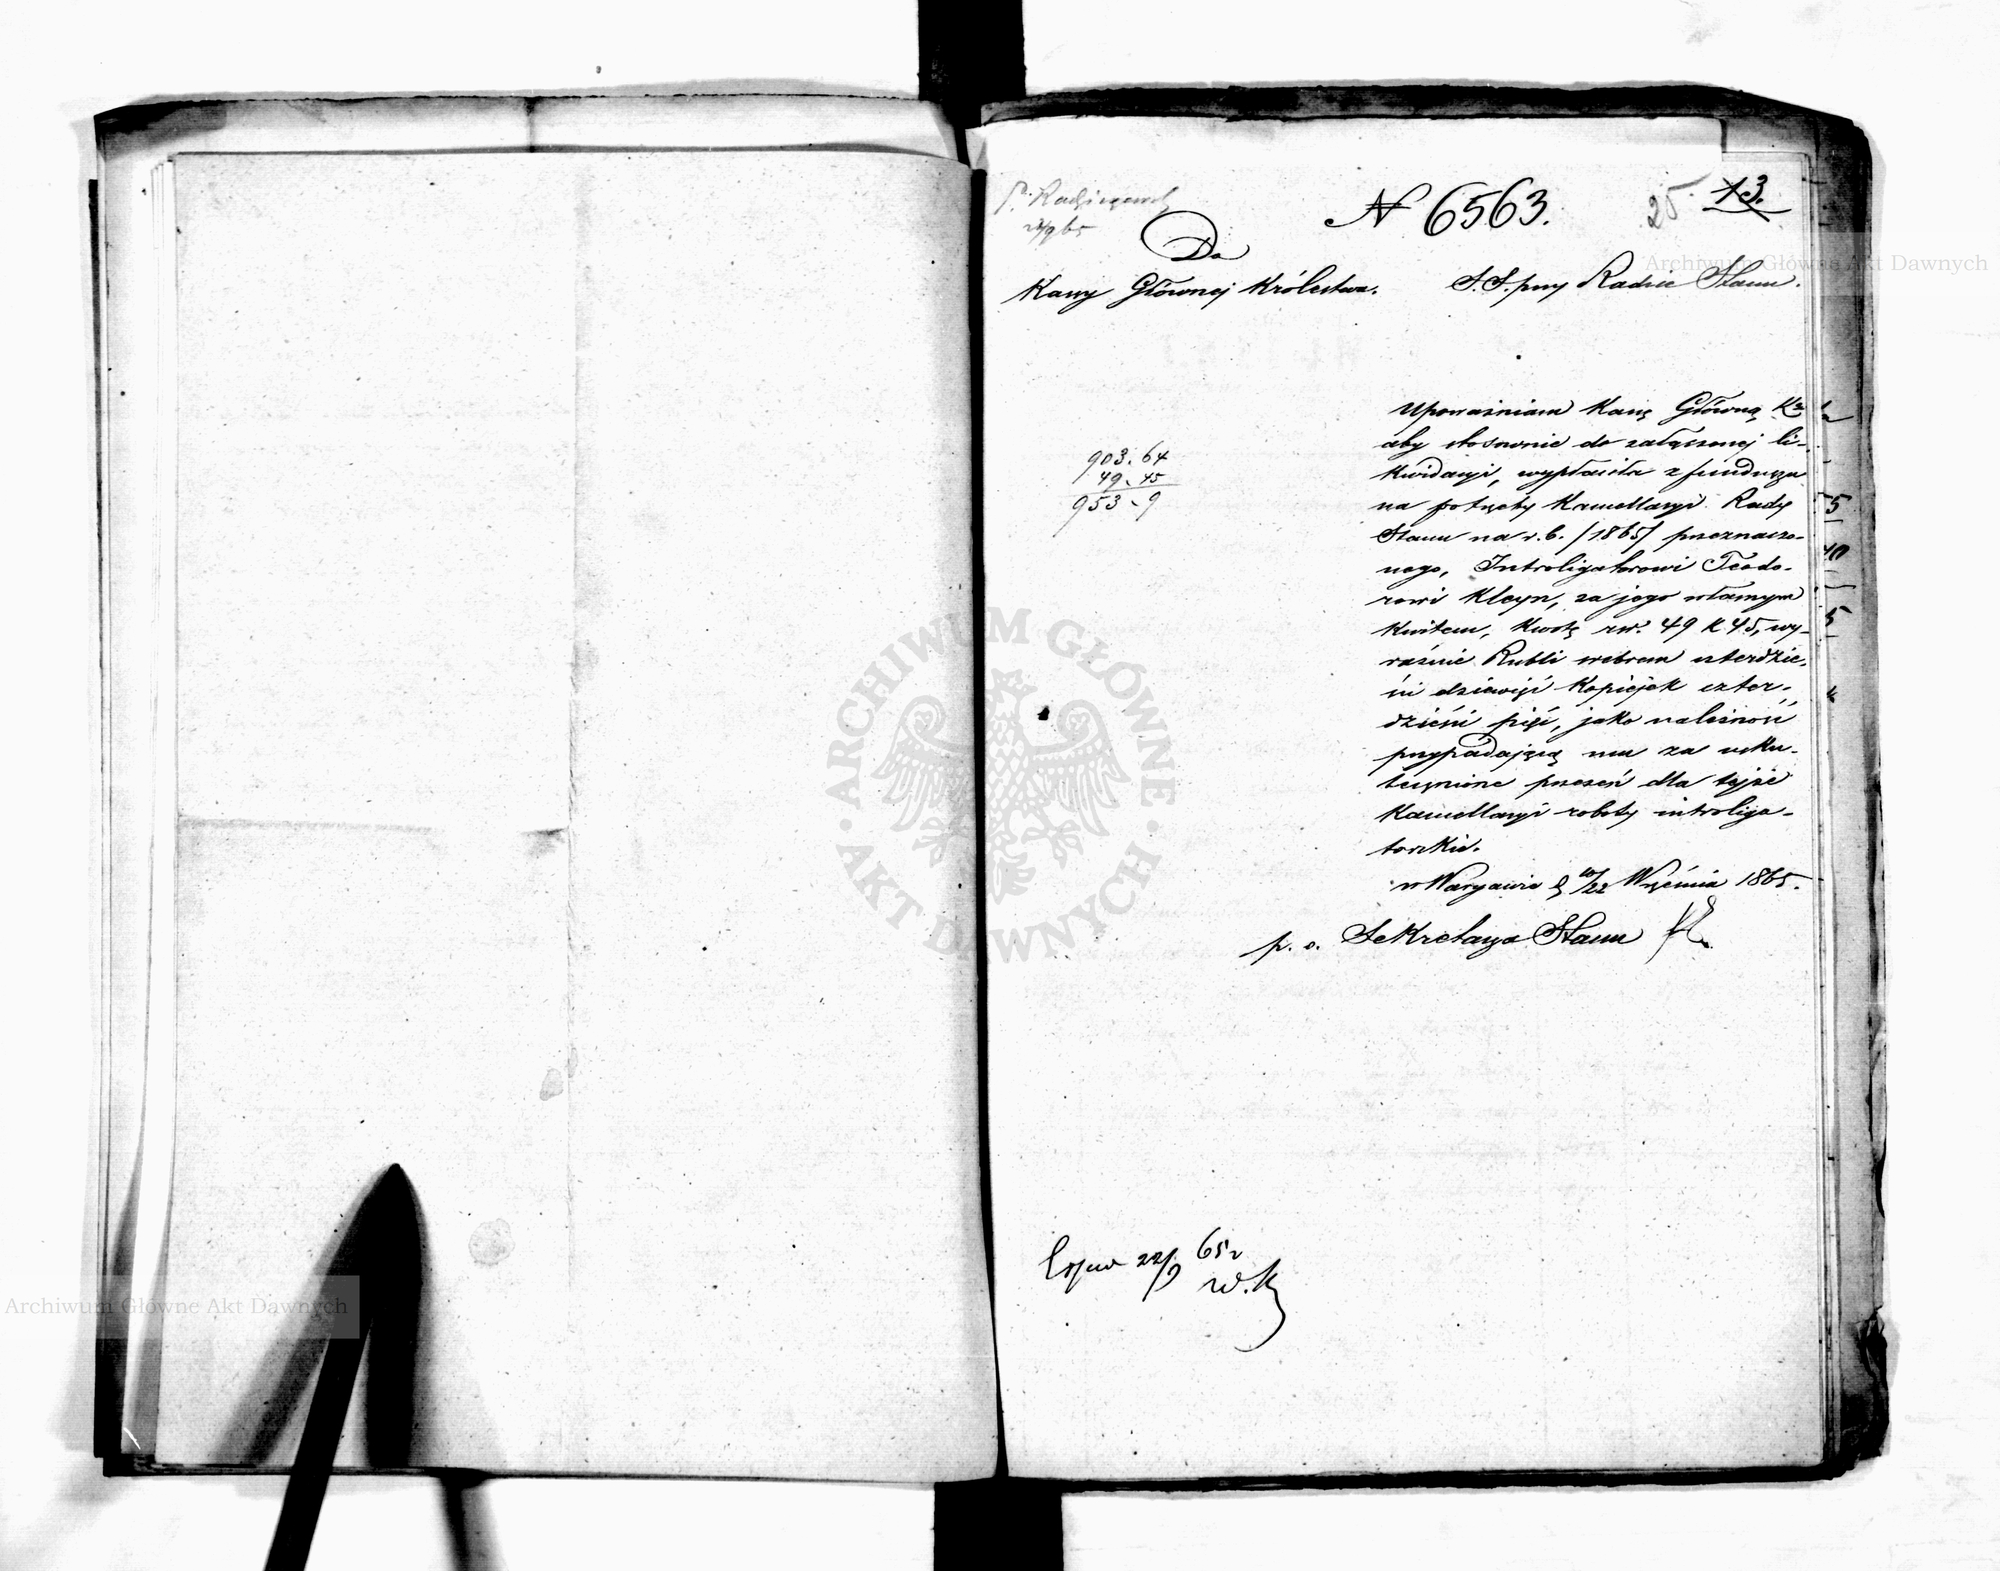 P. Radziszewski
22/9 65
N 6563.
25. 13.
Do
Kassy Głównej Królestwa.
S. S. przy Radzie Stanu.
903. 64
49. 45
953. 9
Upoważniam Kassę Główną Kr.
aby stosownie do załączonej li-
kwidacyi, wypłaciła z funduszu
na potrzeby Kancellaryi Rady
Stanu na r. b. /1865/ przeznaczo-
nego, Introligatorowi Teodo-
rowi Kleyn, za jego własnym
kwitem, kwotę rsr. 49 k 45, wy-
raźnie Rubli srebrem czterdzie-
ści dziewięć kopiejek czter-
dzieści pięć, jako należność
przypadającą mu za usku-
tecznione przezeń dla tejże
Kancellaryi roboty introliga-
torskie.
w Warszawie d 10/22 Września 1865.
p. o. Sekretarza Stanu
22/9 65 r
W. K
Archiwum Główne Akt Dawnych
ARCHIWUM GŁÓWNE
AKT DAWNYCH
Archiwum Główne Akt Dawnych